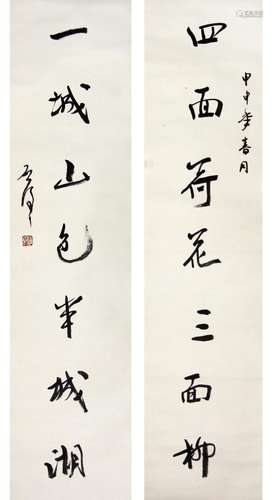 甲申年春月
四面荷花三面柳
一城山色半城湖